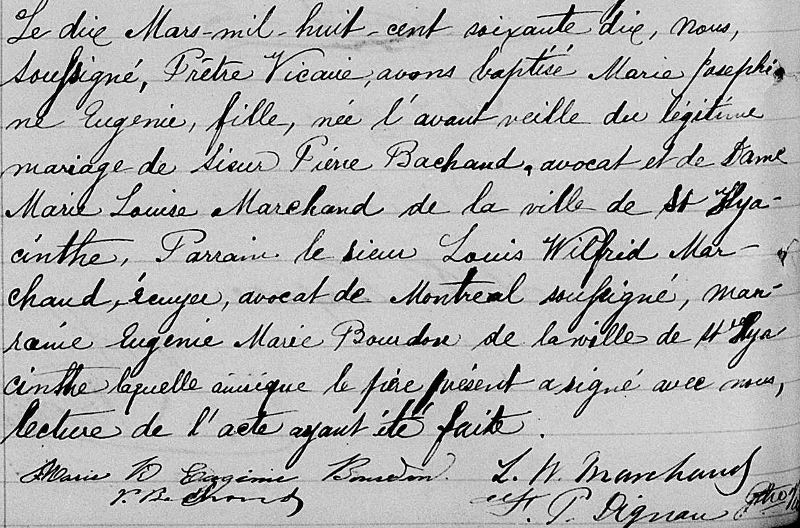 Le dix Mars mil-huit-cent soixante dix, nous,
soussigné, Prêtre Vicaire, avons baptisé Marie Josephi-
ne Eugénie, fille, née l'avant veille du légitime
mariage de Sieur Pierre Bachand, avocat et de Dame
Marie Louise Marchand de la ville de St Hya-
cinthe, Parrain le sieur Louis Wilfrid Mar-
chand, écuyer, avocat de Montreal soussigné, mar-
raine Eugenie Marie Bourdon de la ville de St Hya
cinthe laquelle ainsique le père présent a signé avec nous,
lecture de l'acte ayant été faite.
Marie D Eugénie Bourdon. L. W. Marchand
P. Bachand F. P. Dignau Ptre